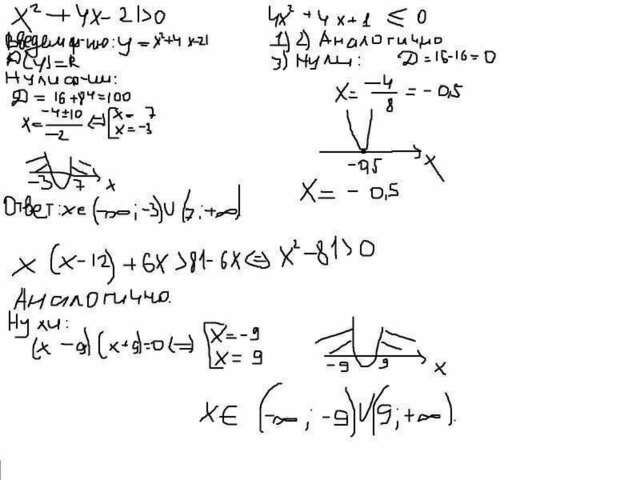 x² + 4x - 21 > 0
Введем ф-ю: y = x²+4x-21
D(y) = R
Нули ф-ии:
D = 16 + 84 = 100
x = \frac{-4±10}{-2} ⇔ [x = 7
x = -3
-3 7 x
Ответ: x ∈ (-∞; -3) ∪ (7; +∞)
4x² + 4x + 1 ≤ 0
1) 2) Аналогично
3) Нули: D = 16 - 16 = 0
x = \frac{-4}{8} = -0,5
-0,5 x
x = -0,5
x (x - 12) + 6x > 81 - 6x ⇔ x² - 81 > 0
Аналогично.
Нули:
(x - 9) (x + 9) = 0 ⇔ [x = -9
x = 9
-9 9 x
x ∈ (-∞; -9) ∪ (9; +∞).